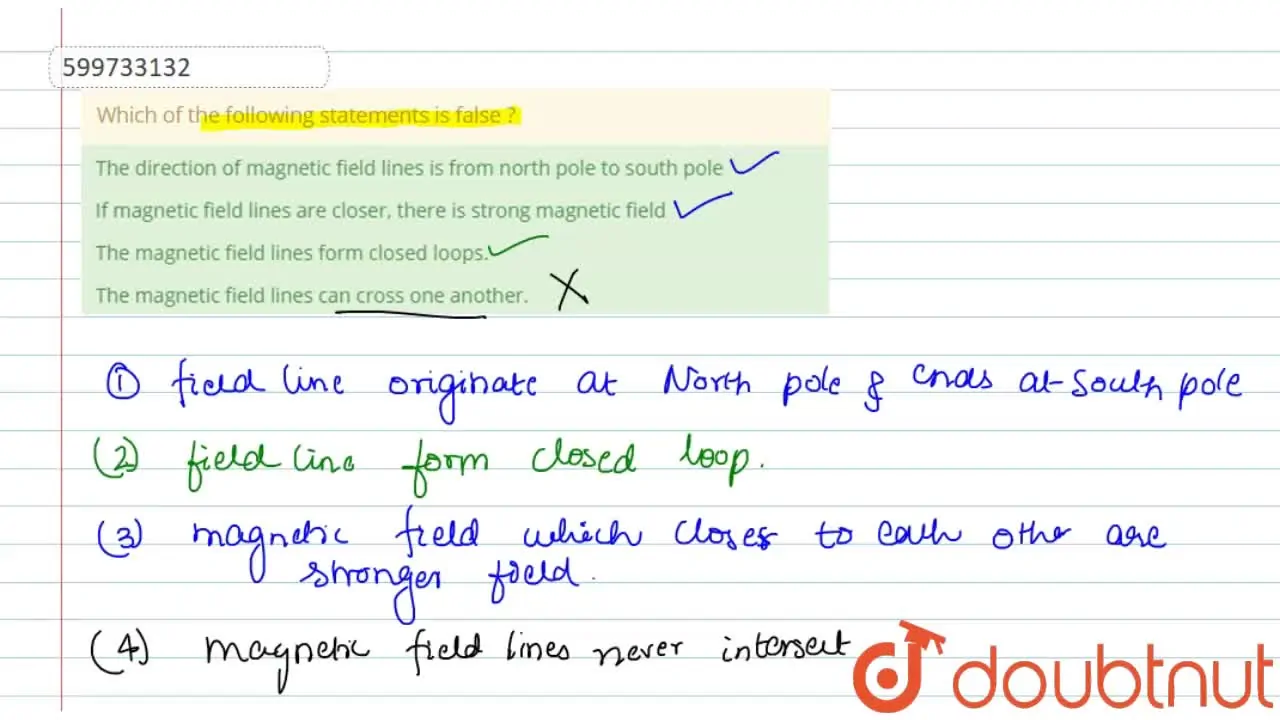 599733132
Which of the following statements is false ?
The direction of magnetic field lines is from north pole to south pole
If magnetic field lines are closer, there is strong magnetic field
The magnetic field lines form closed loops.
The magnetic field lines can cross one another.
① field line originate at North pole & ends at South pole
(2) field line form closed loop.
(3) magnetic field which closes to each other are
stronger field.
(4) magnetic field lines never intersect
doubtnut